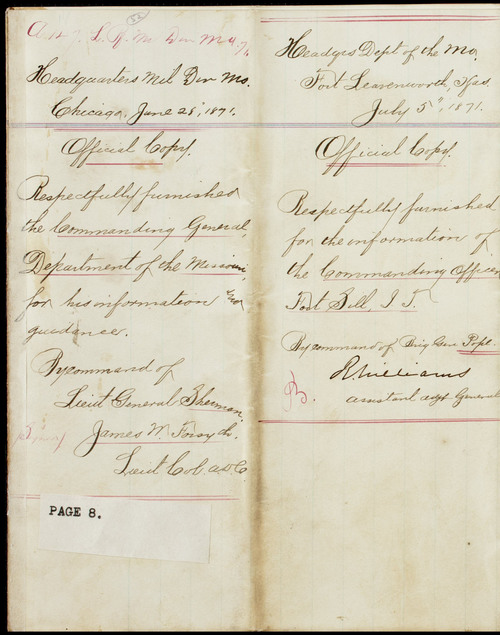 Headquarters Mil Div Mo.
Chicago. June 28", 1871.
Official Copy.
Respectfully furnished
the Commanding General,
Department of the Missouri,
for his information and
guidance.
By command of
Lieut General Sherman.
James W. Forsyth.
Lieut Col & A D C
PAGE 8.
Headqrs Dept of the Mo.
Fort Leavenworth, Kas.
July 5", 1871.
Official Copy.
Respectfully furnished
for the information of
the Commanding Officer
Fort Sill, I. T.
By command of Brig Gen Pope.
R Williams
Assistant Adjt General